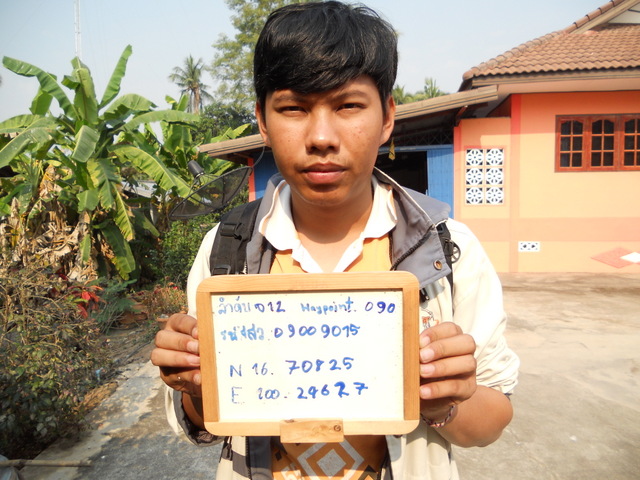 ลำดับ 012 Waypoint. 090
รหัสสว 09009015
N 16. 70825
E 100. 24627